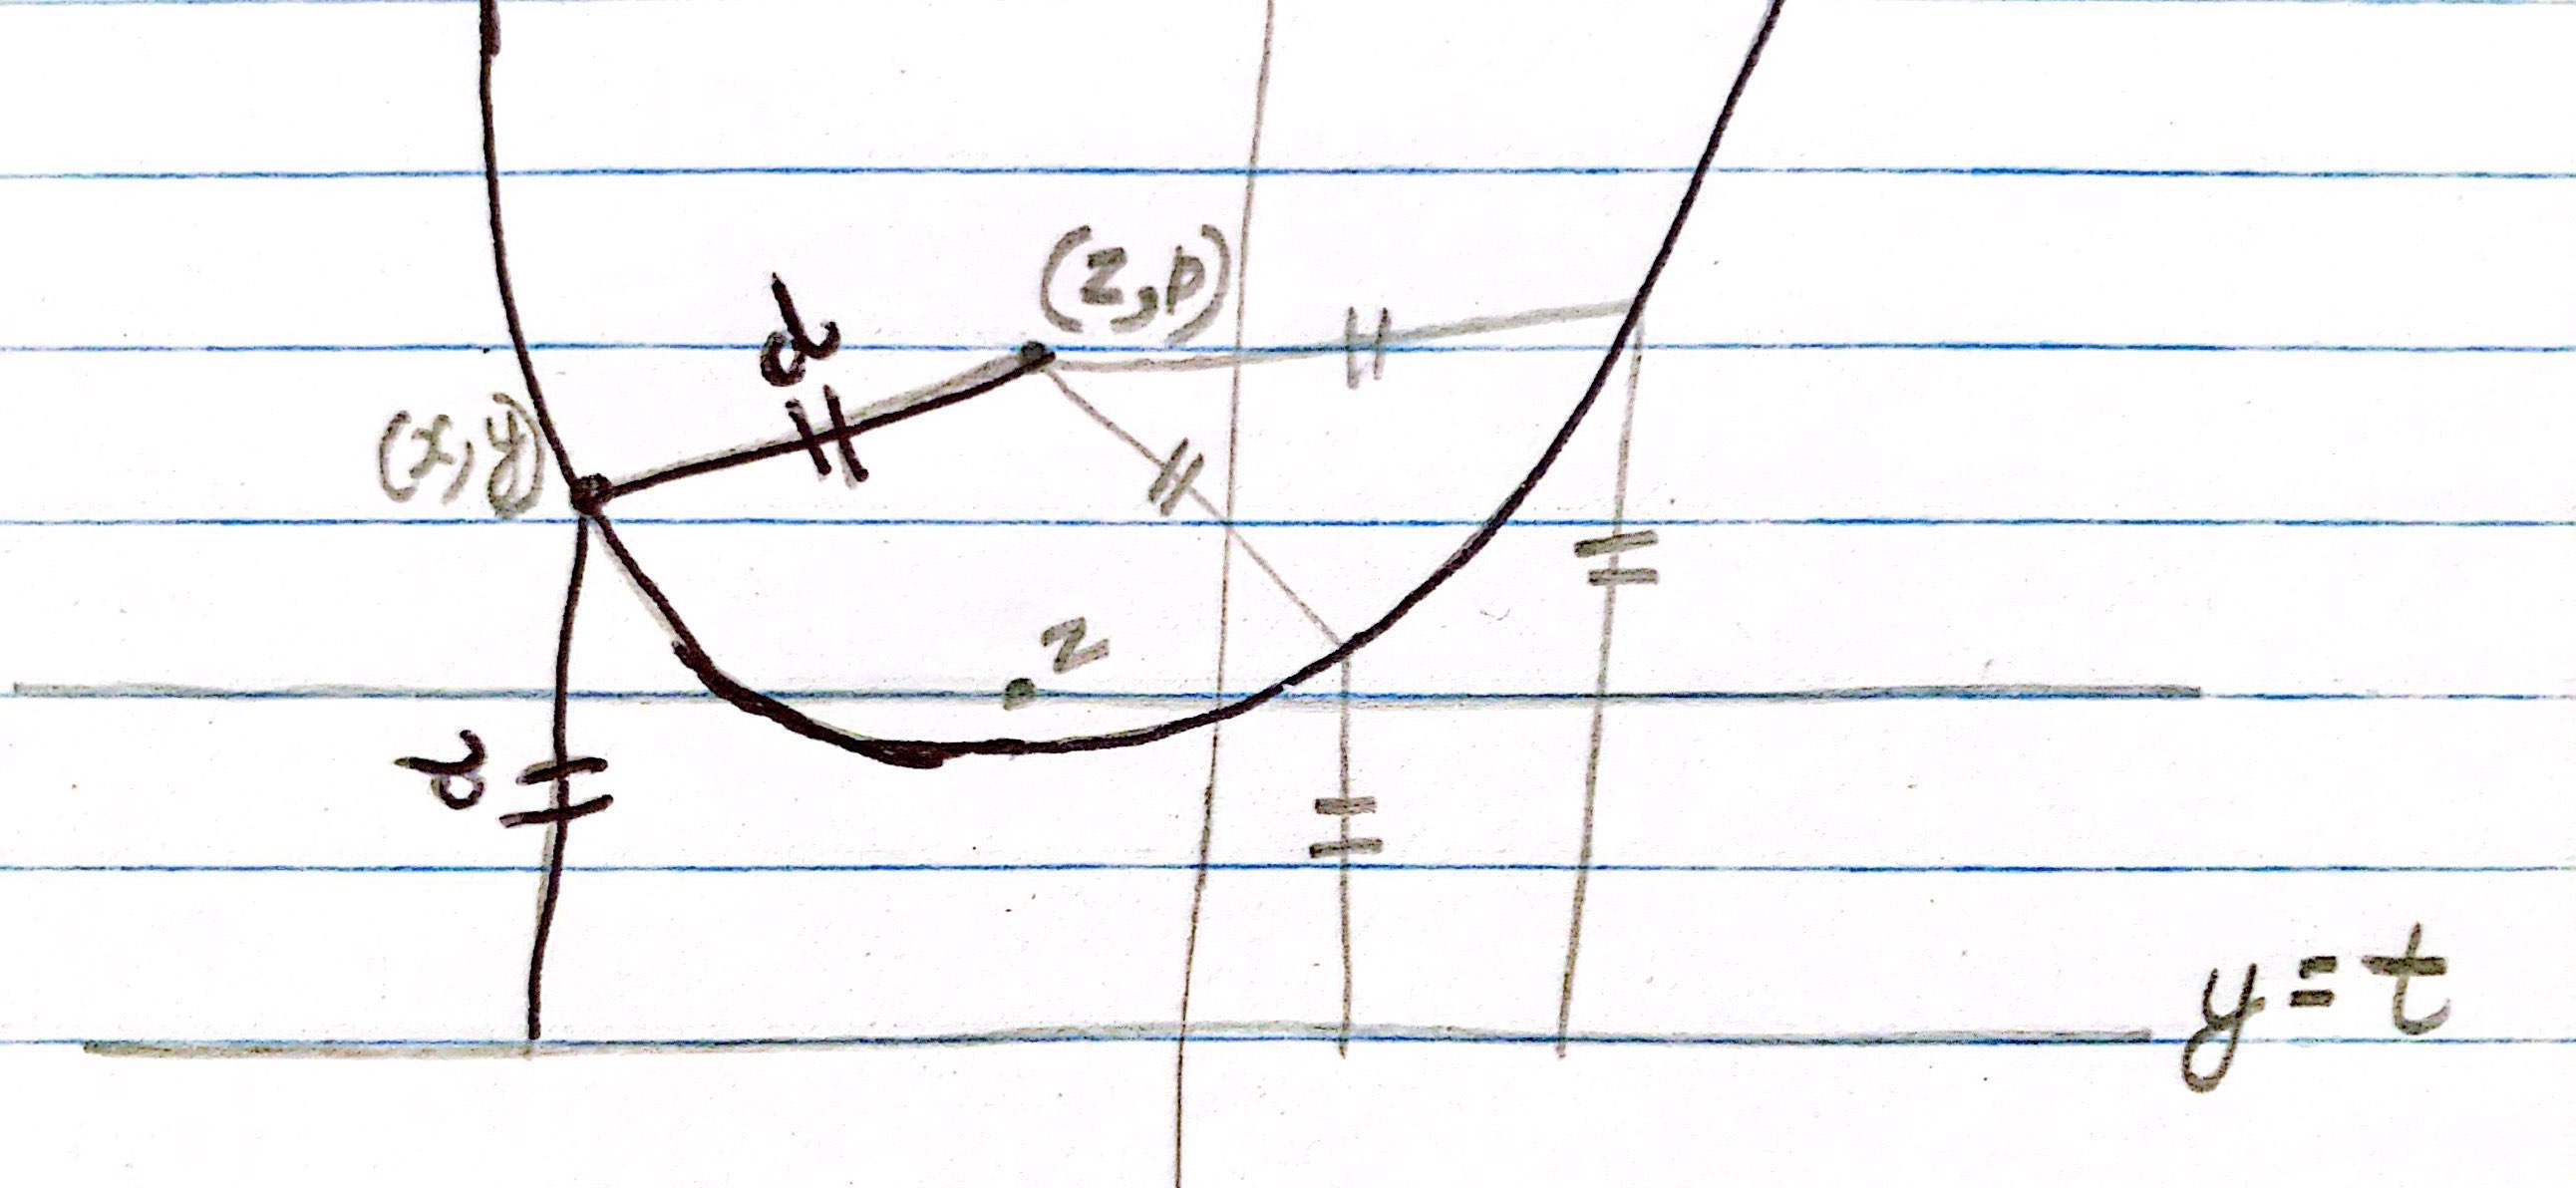 (z,p)
d
(x,y)
z
d
y = t